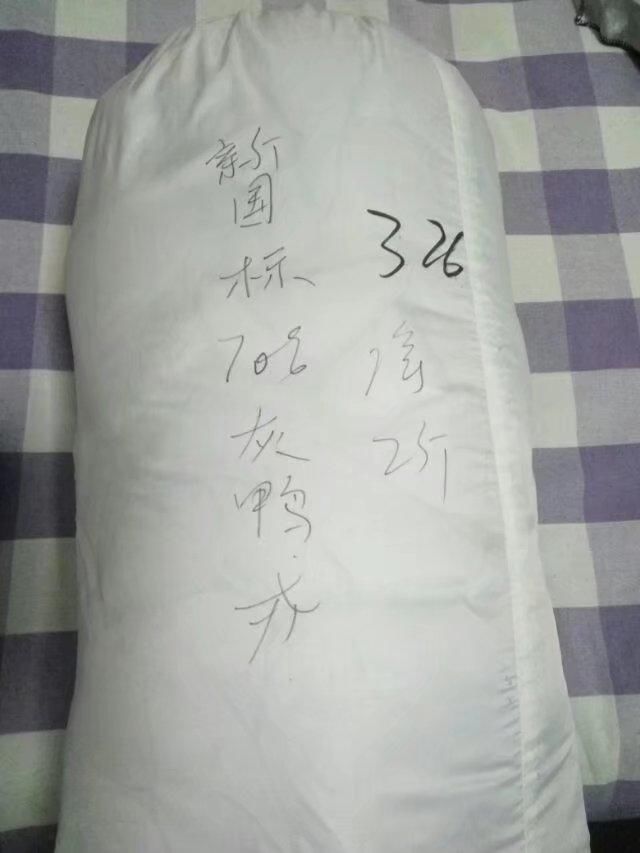 新国标70%灰鸭戎
326
2斤